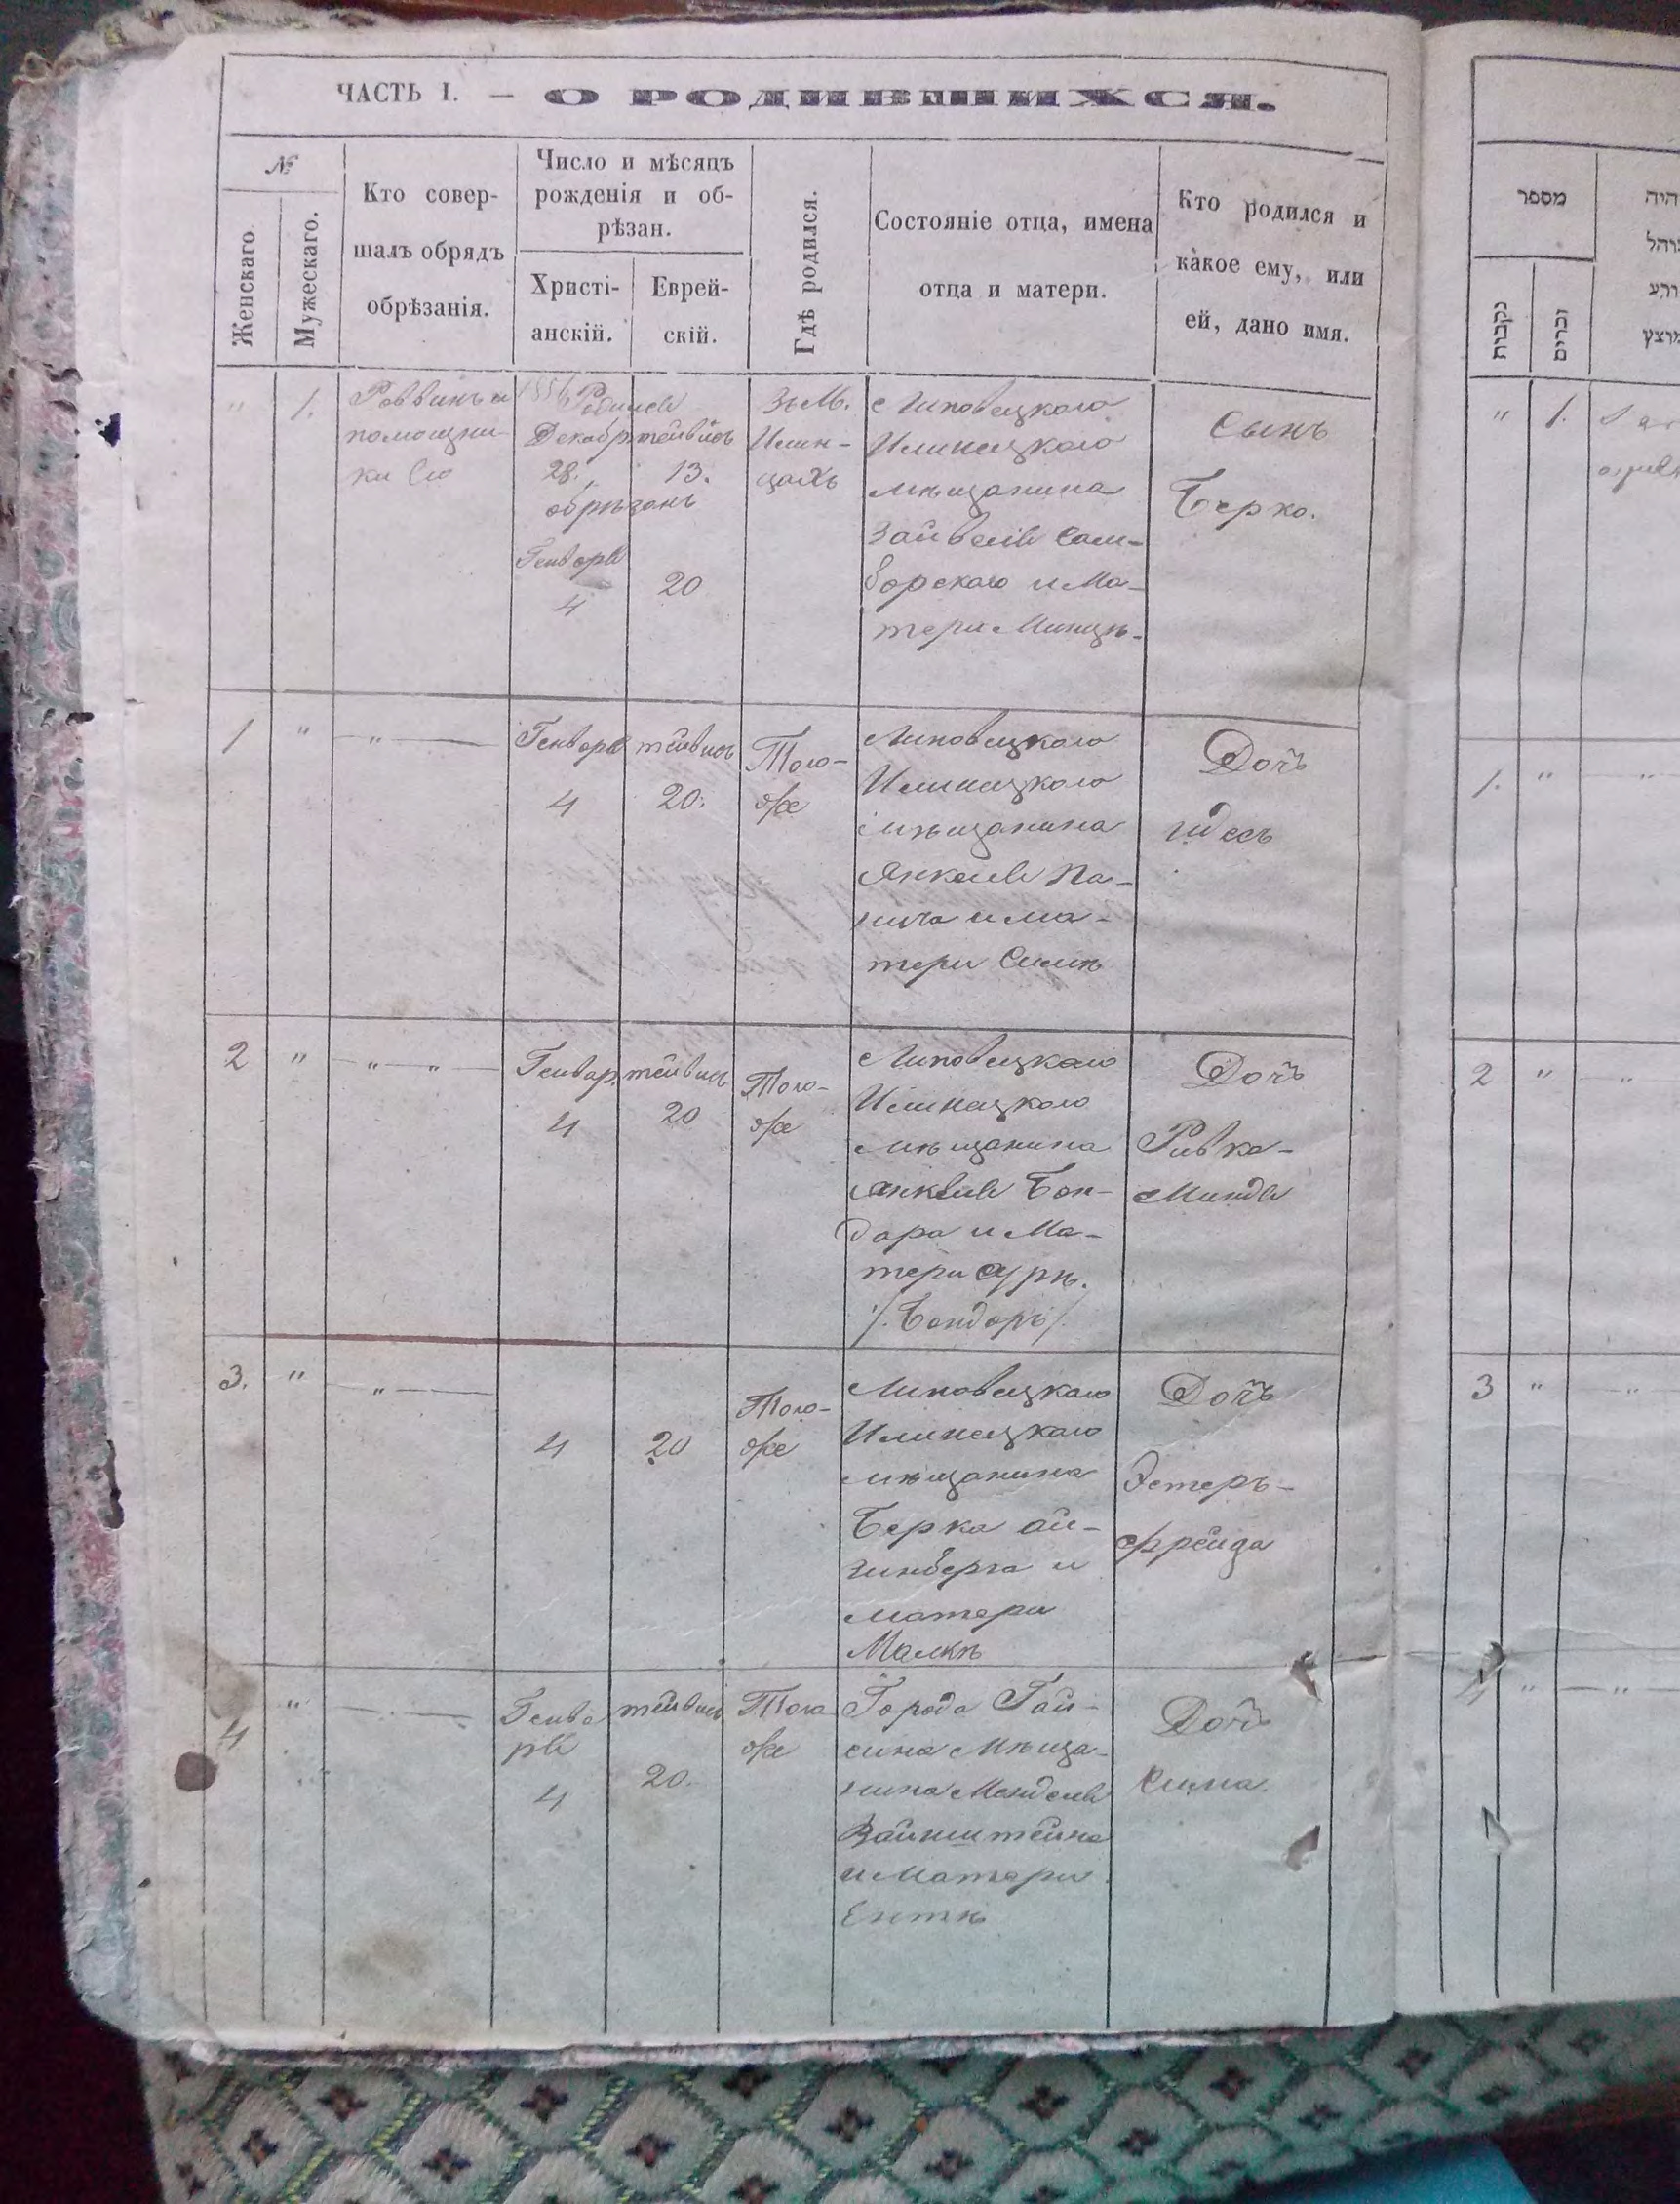 ЧАСТЬ I. — О РОДИВШИХСЯ.
№
Женскаго.
Мужескаго.
Кто совер-
шалъ обрядъ
обрѣзанія.
Число и мѣсяцъ
рожденія и об-
рѣзан.
Христі-
анскій.
Еврей-
скій.
Гдѣ родился.
Состояніе отца, имена
отца и матери.
Кто родился и
какое ему, или
ей, дано имя.
" 1.
Раввинъ и
помощни-
ки его
Родился
Декабр тейвисъ
28. 13.
обрѣзанъ
Генваря
4 20
Въ М.
Илин-
цахъ
Липовецкого
Илинецкого
мѣщанина
Зайвеля Сам-
борского и Ма-
тери Минцѣ
Сынъ
Берко.
1 " — " —
Генваря тейвисъ
4 20.
Того-
же
Липовецкого
Илинецкого
мѣщанина
Янкеля Па-
нича и ма-
тери Симѣ
Дочь
Идесъ
2 " — " — " —
Генвар. тейвисъ
4 20
Того-
же
Липовецкаго
Илинецкого
мѣщанина
Янкеля Бон-
дара и Ма-
тери Сурѣ.
/. Бондарь /.
Дочь
Ривка-
Миндя
3. " — " —
4 20
Того-
же
Липовецкаго
Илинецкаго
мѣщанина
Берка Ай-
зинберга и
матери
Малкѣ
Дочь
Эстеръ-
Фрейда
4 "
Генва
ря тейвисъ
4 20.
Того
же
Города Гай-
сина Мѣща-
нина Менделя
Вайнштейна
и Матери
Ентѣ
Дочь
Сима.
מספר
נקבות
זכרים
" 1.
1. "
2 "
3 "